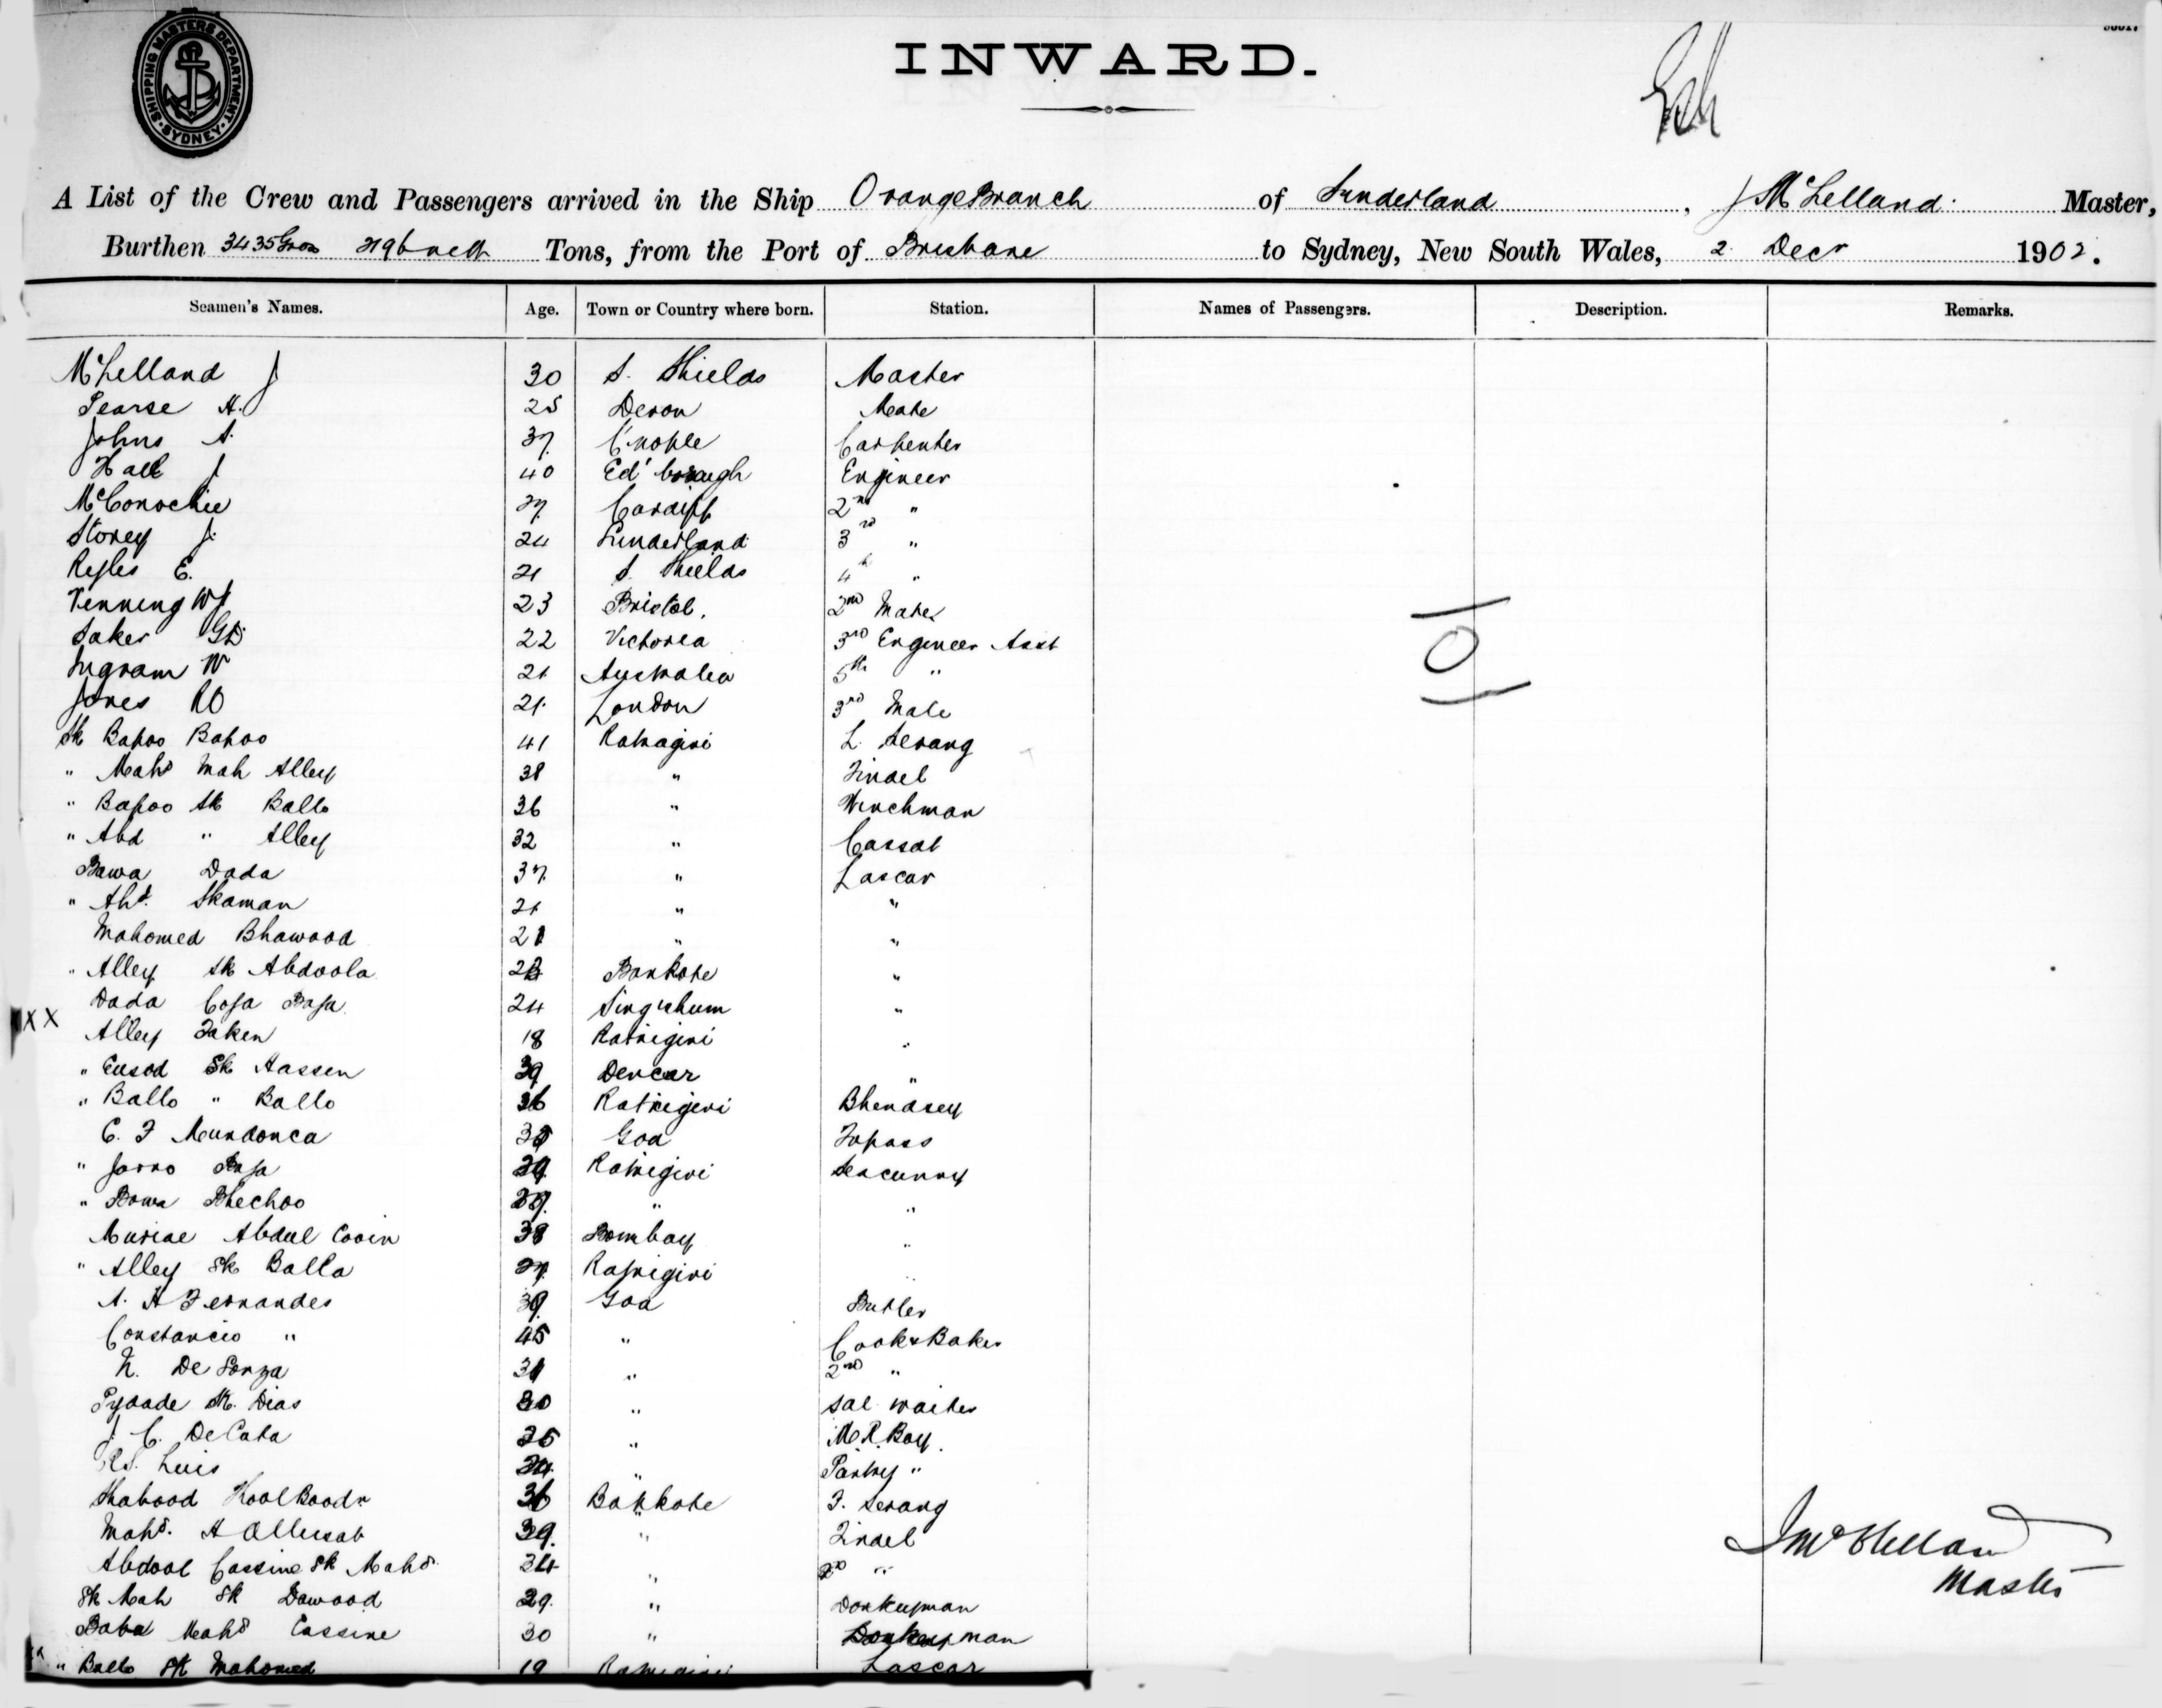 SHIPPING MASTERS DEPARTMENT · SYDNEY ·
INWARD.
A List of the Crew and Passengers arrived in the Ship OrangeBranch of Sunderland, J McLelland Master,
Burthen 3435 Gross nett Tons, from the Port of Brisbane to Sydney, New South Wales, 2 Decr 1902.
Seamen's Names. Age. Town or Country where born. Station. Names of Passengers. Description. Remarks.
McLelland J 30 S. Shields Master
Pearse H. 25 Devon Mate
Johns S. 37 C'nople Carpenter
Hall J 40 Ed'borough Engineer
McConochie 27 Cardiff 2nd "
Storey J. 24 Sunderland 3rd "
Ryles E. 21 S. Shields 4th "
Venning WJ 23 Bristol. 2nd Mate
Saker GD 22 Victoria 3rd Engineer Asst
Ingram W 21 Australia 5th "
Jones RO 21 London 3rd Mate
Sk Bapoo Bapoo 41 Ratnagiri L. Serang
" Mahd Mah Alley 38 " Tindel
" Bapoo Sk Ballo 36 " Winchman
" Abd " Alley 32 " Cassab
Bawa Dada 37 " Lascar
" Ahd. Skaman 21 " "
Mahomed Bhawood 21 " "
" Alley Sk Abdoola Bankote "
Dada 24 "
XX Alley 18 Ratnigiri "
" Eusod Sk Hassen 39 "
" Ballo " Ballo 36 Ratnigiri Bhendsey
C. F Mundonca 35 Goa Topass
" 29 Ratnigiri Seacunny
" Bowa Bhechoo "
Abdul 38 Bombay "
" Alley Sk Balla 27 Ratnigiri "
A. H Fernandes 39 Goa Butler
Constancio " 45 " Cook & Baker
N. De Souza 31 " 2nd "
Dias 30 " Sal waiter
J. C. DeCata 25 " M.R. Boy.
R.S. Luis 24 " Pantry "
36 Bankote F. Serang
Mahd. 39 " Tindel
Abdool Cassim Sk Mahd 34 " 2nd "
Sk Mah Sk Dawood 29 " Donkeyman
Baba Mahd Cassine 30 " Donkeyman
" Ballo Sk Mahomed 19 Ratnigiri Lascar
J McLelland
Master